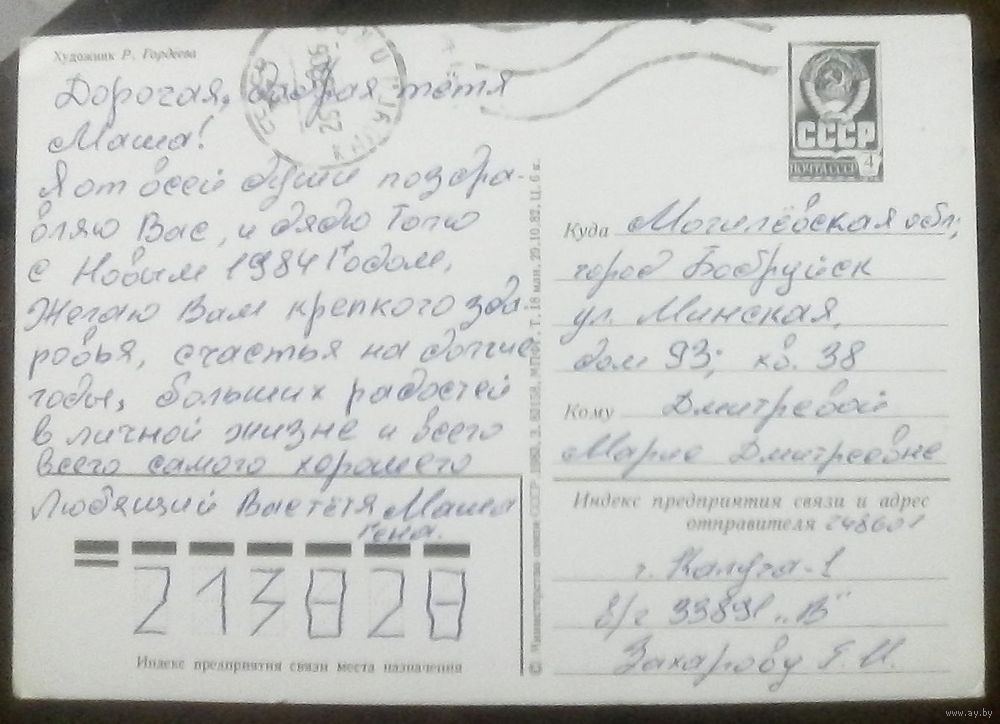 Художник Р. Гордеева
Дорогая, добрая тётя
Маша!
Я от всей души поздра-
вляю Вас, и дядю Толю
с Новым 1984 Годом,
Желаю Вам крепкого здо-
ровья, счастья на долгие
годы, больших радостей
в личной жизне и всего
всего самого хорошего
Любящий Вас тётя Маша
Гена.
213820
Индекс предприятия связи места назначения
© Министерство связи СССР 1982. З. 82158. МПФГ. Т. 18 млн. 29.10.82. Ц. 6 к.
СССР
ПОЧТА СССР 4
Куда Могилёвская обл;
город Бобруйск
ул. Минская,
дом 93; кв. 38
Кому Дмитревой
Марие Дмитревне
Индекс предприятия связи и адрес
отправителя 248601
г. Калуга-1
в/ч 33891 „В"
Захарову Г. И.
www.ay.by